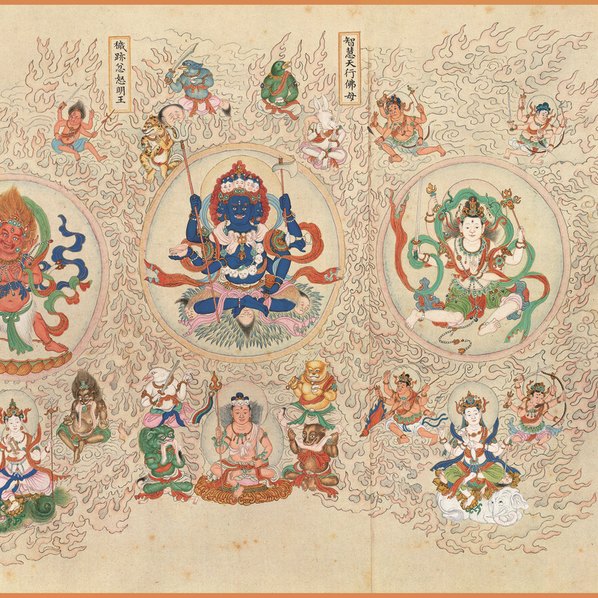 智慧天行佛母
穢跡忿怒明王